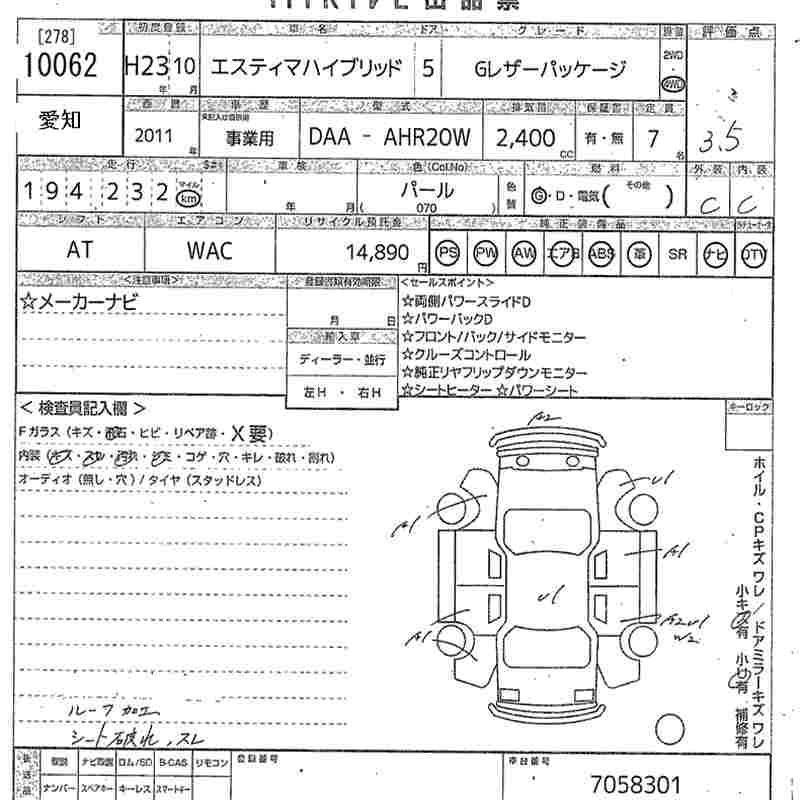 [278]
10062
初度登録
H23 10
年 月
車名
エスティマハイブリッド
ドア
5
グレード
Gレザーパッケージ
2WD
4WD
評価点
3.5
愛知
西暦
2011
年
車歴
事業用
型式
DAA - AHR20W
排気量
2,400
CC
保証書
有・無
定員
7
名
走行
194,232
マイル
km
車検
年 月
色(Col.No)
パール
( 070 )
色替
燃料
G・D・電気( その他 )
外装 内装
C C
シフト
AT
エアコン
WAC
リサイクル預託金
14,890
円
純正装備品
PS PW AW エアB ABS 革 SR ナビ DTV
<注意事項>
☆メーカーナビ
登録書類有効期限
月 日
輸入車
ディーラー・並行
左H ・ 右H
<セールスポイント>
☆両側パワースライドD
☆パワーバックD
☆フロント/バック/サイドモニター
☆クルーズコントロール
☆純正リヤフリップダウンモニター
☆シートヒーター ☆パワーシート
<検査員記入欄>
Fガラス (キズ・飛石・ヒビ・リペア跡・X要)
内装 (キズ・スレ・汚れ・シミ・コゲ・穴・キレ・破れ・割れ)
オーディオ (無し・穴) / タイヤ (スタッドレス)
ルーフ加工
シート破れ,スレ
キーロック
A2
U1
A1
A1
U1
A2U1
W2
A1
ホイル・CPキズワレ/ドアミラーキズワレ
小キズ有 小凹有 補修有
後送品
取説 ナビ取説 ロム/SD B-CAS リモコン
ナンバー スペアキー キーレス スマートキー
登録番号
車台番号
7058301